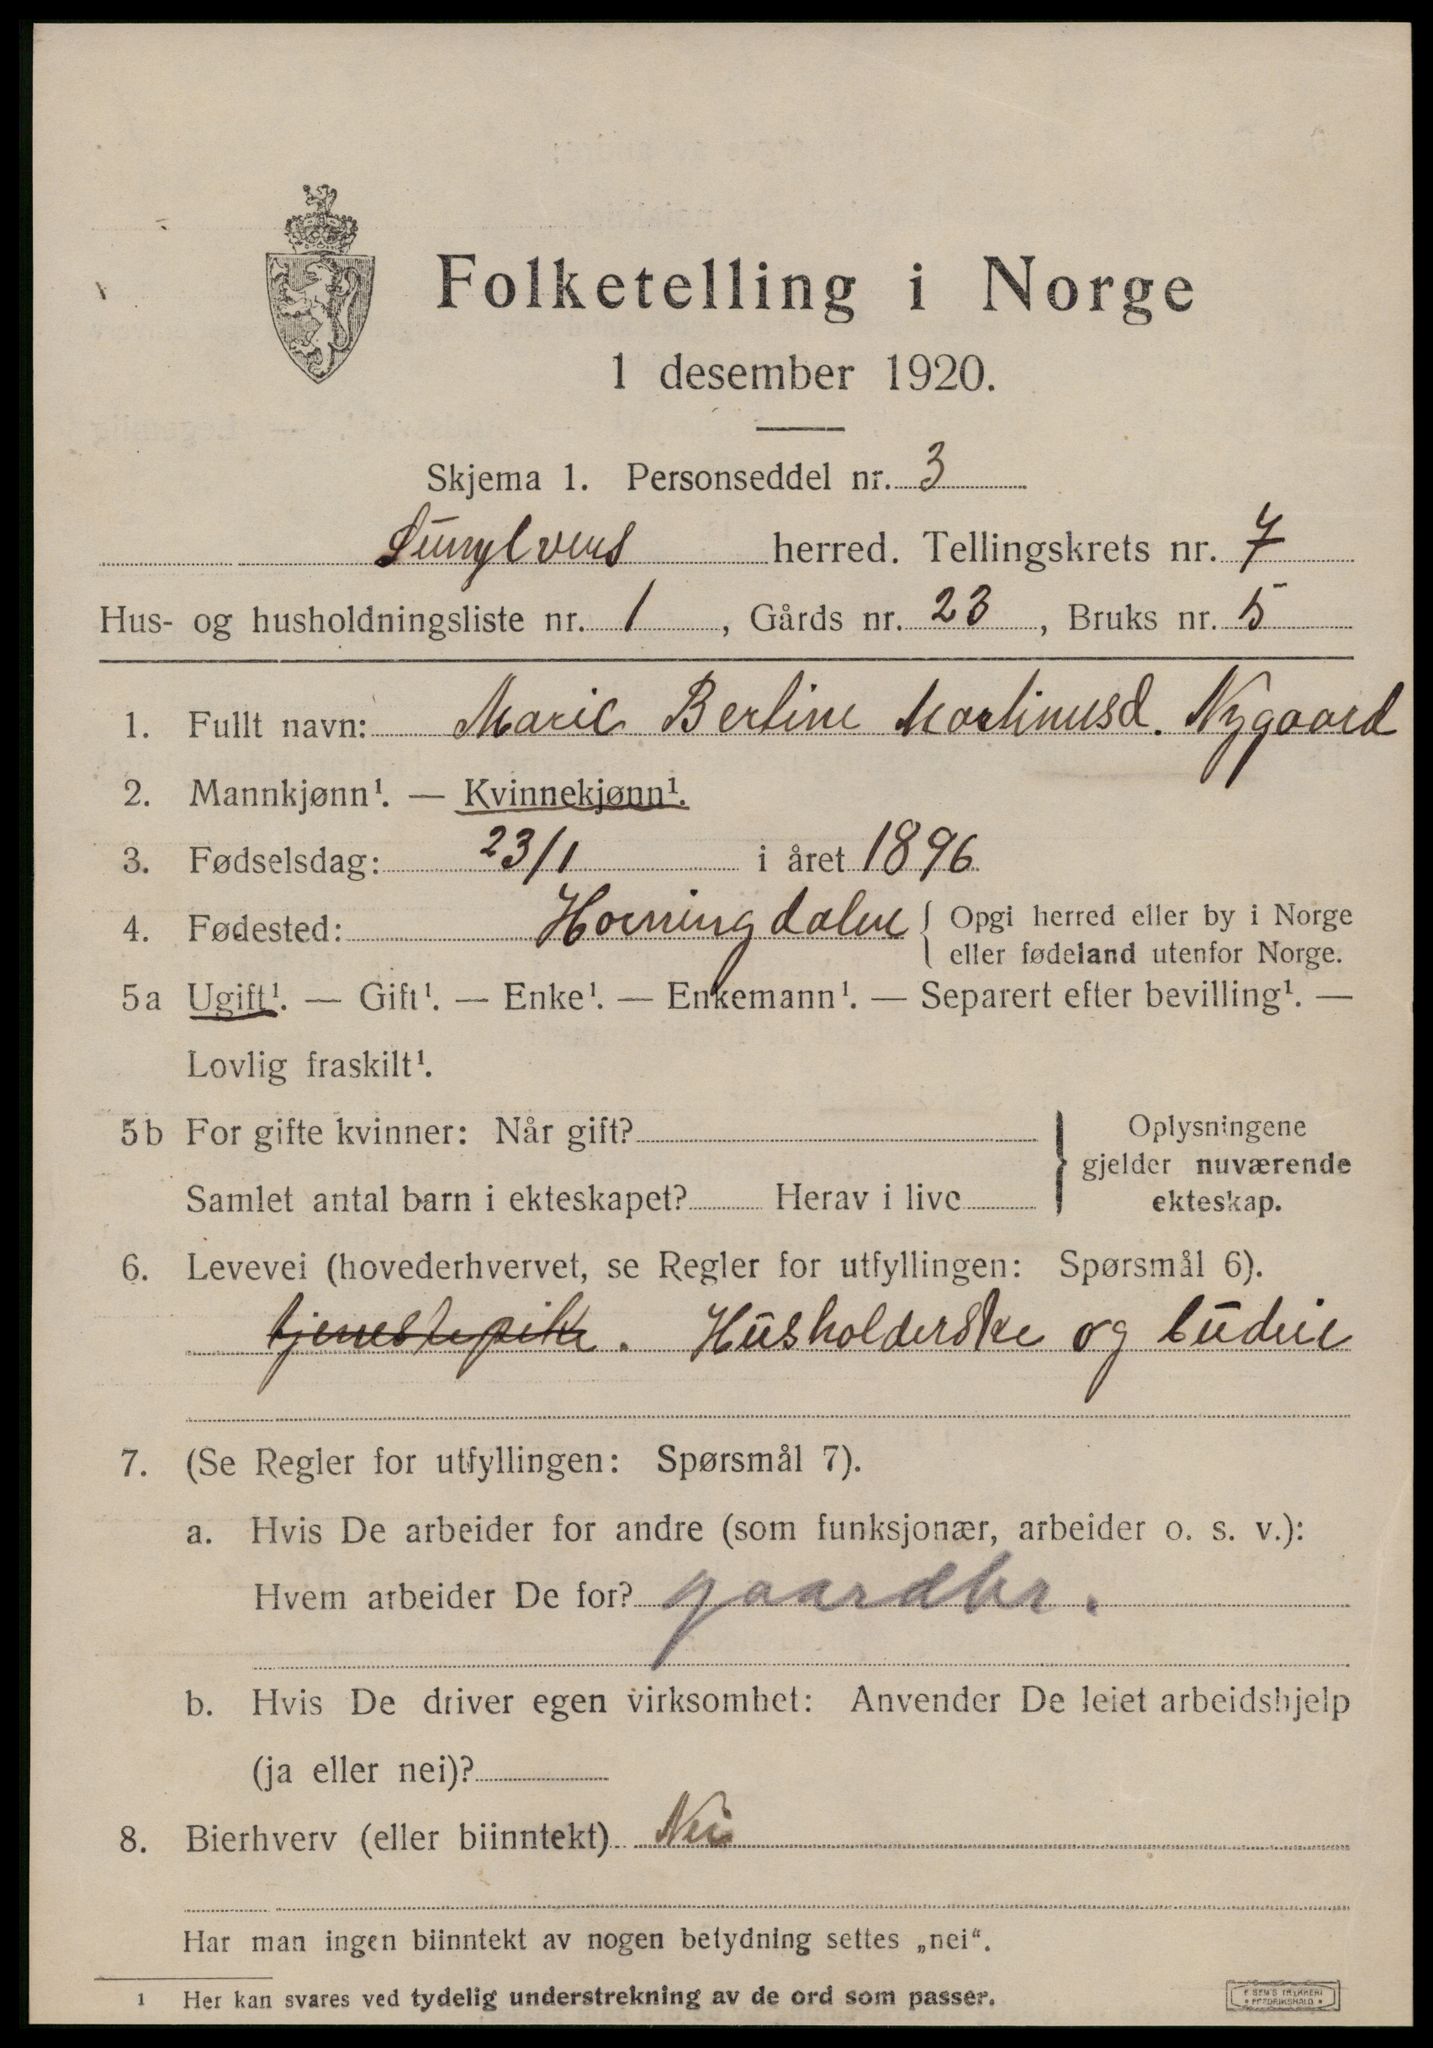 Folketelling i Norge
1 desember 1920.
Skjema 1. Personseddel nr. 3
Sunylvens herred. Tellingskrets nr. 7
Hus- og husholdningsliste nr. 1, Gårds nr. 23, Bruks nr. 5
1. Fullt navn: Marie Bertine Martinusd. Nygaard
2. Mannkjønn¹. — Kvinnekjønn¹.
3. Fødselsdag: 23/1 i året 1896
4. Fødested: Horningdalen { Opgi herred eller by i Norge
eller fødeland utenfor Norge.
5a Ugift¹. — Gift¹. — Enke¹. — Enkemann¹. — Separert efter bevilling¹. —
Lovlig fraskilt¹.
5b For gifte kvinner: Når gift? } Oplysningene
gjelder nuværende
Samlet antal barn i ekteskapet? Herav i live
ekteskap.
6. Levevei (hovederhvervet, se Regler for utfyllingen: Spørsmål 6).
tjenestepike. Husholderske og budeie
7. (Se Regler for utfyllingen: Spørsmål 7).
a. Hvis De arbeider for andre (som funksjonær, arbeider o. s. v.):
Hvem arbeider De for? gaardbr.
b. Hvis De driver egen virksomhet: Anvender De leiet arbeidshjelp
(ja eller nei)?
8. Bierhverv (eller biinntekt) Nei
Har man ingen biinntekt av nogen betydning settes „nei“.
1 Her kan svares ved tydelig understrekning av de ord som passer.